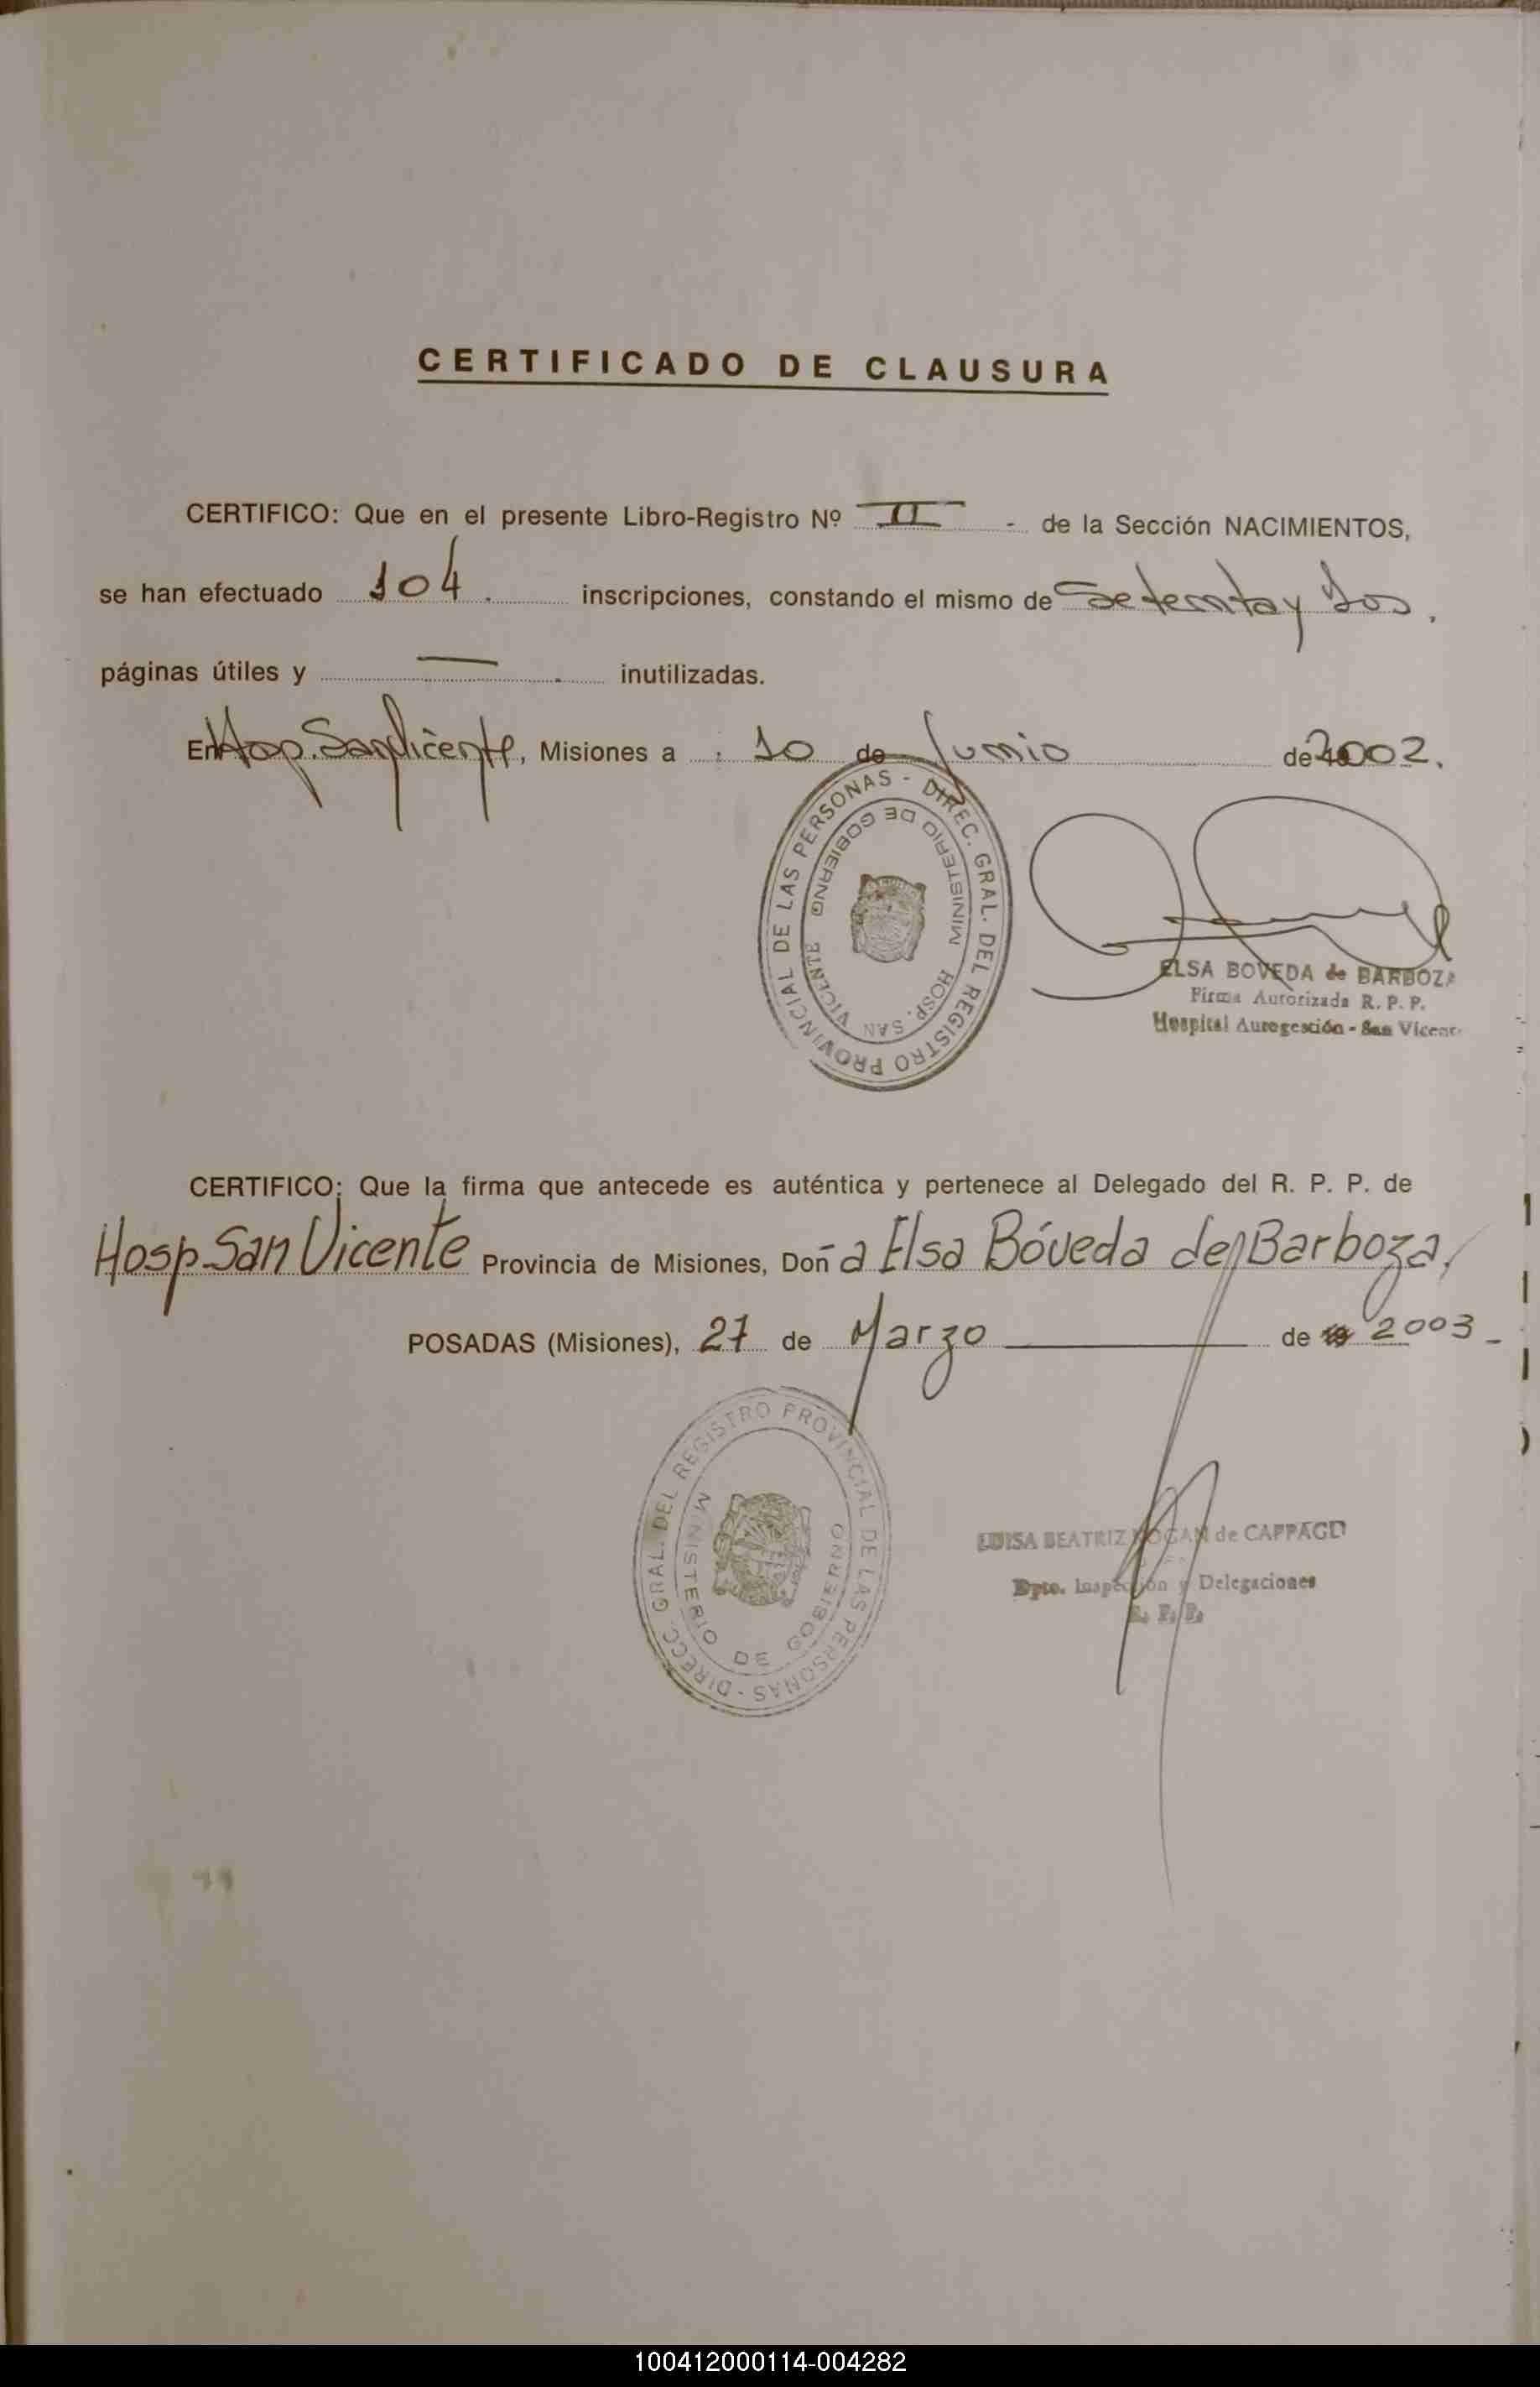 CERTIFICADO DE CLAUSURA
CERTIFICO: Que en el presente Libro-Registro Nº II - de la Sección NACIMIENTOS,
se han efectuado 104. inscripciones, constando el mismo de Setenta y dos.
páginas útiles y — inutilizadas.
En Hosp. San Vicente, Misiones a 10 de Junio de 2002.
DIREC. GRAL. DEL REGISTRO PROVINCIAL DE LAS PERSONAS -
MINISTERIO DE GOBIERNO
HOSP. SAN VICENTE
ELSA BOVEDA de BARBOZA
Firma Autorizada R. P. P.
Hospital Autogestión - San Vicente
CERTIFICO: Que la firma que antecede es auténtica y pertenece al Delegado del R. P. P. de
Hosp. San Vicente Provincia de Misiones, Doña Elsa Bóveda de Barboza,
POSADAS (Misiones), 27 de Marzo de 19 2003 -
DIRECC. GRAL. DEL REGISTRO PROVINCIAL DE LAS PERSONAS -
MINISTERIO DE GOBIERNO
LUISA BEATRIZ de
Dpto. Inspección y Delegaciones
R. P. P.
100412000114-004282